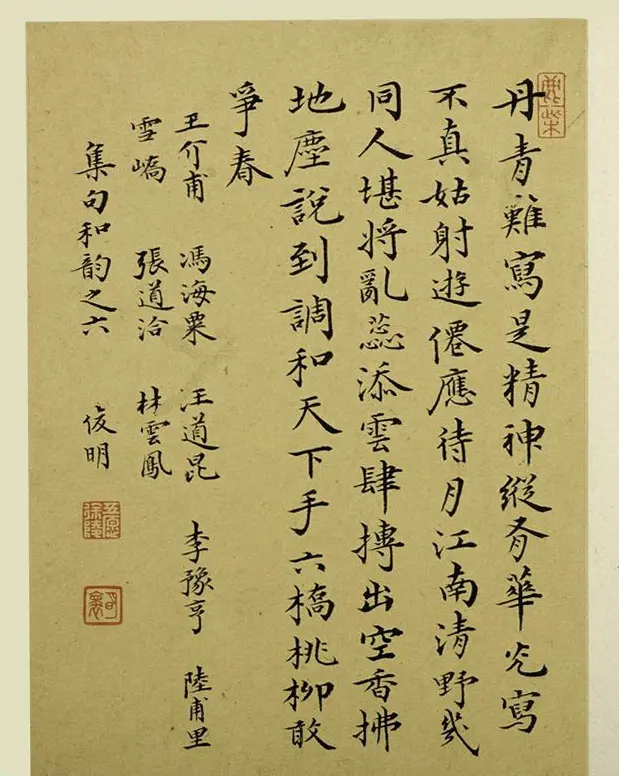 丹青難寫是精神縱有華光寫
不真姑射遊僊應待月江南清野幾
同人堪將亂蕊添雲肆摶出空香拂
地塵說到調和天下手六橋桃柳敢
爭春
王介甫 馮海粟 汪道昆 李豫亨 陸甫里
雪嶠 張道洽 林雲鳳
集句和韵之六 俊明